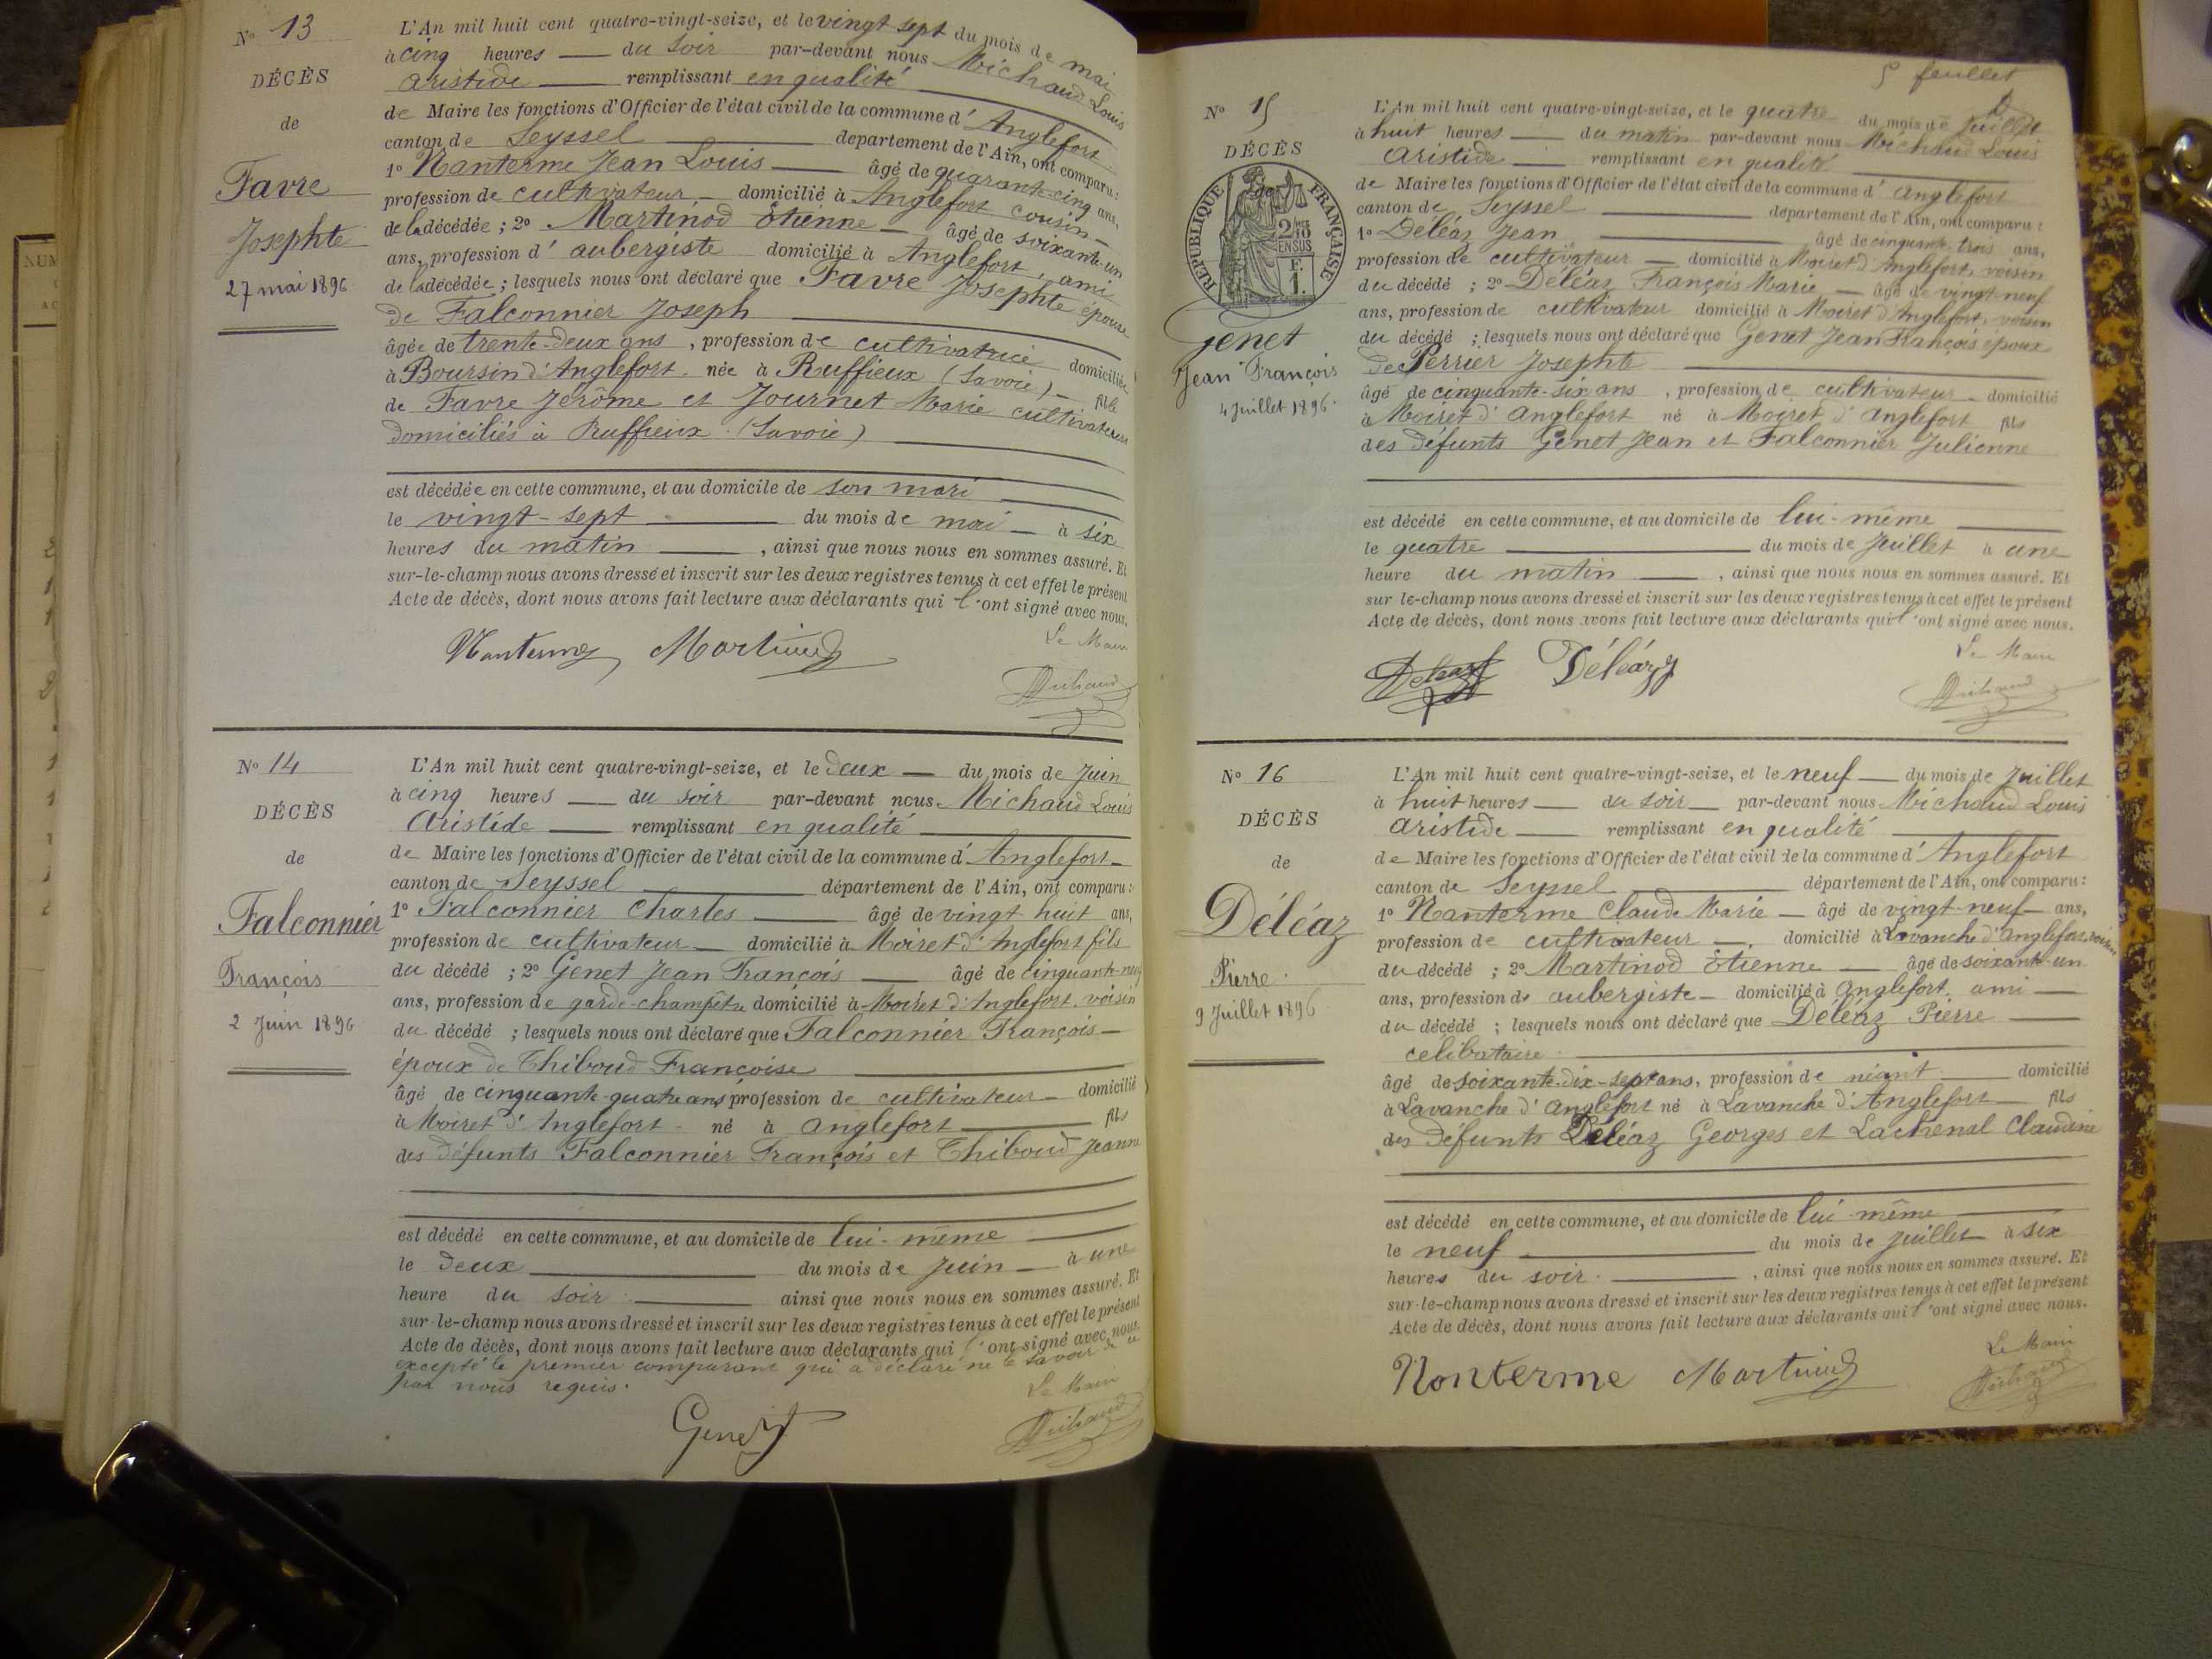 N° 13
DÉCÈS
de
Favre
Josephte
27 mai 1896
L'An mil huit cent quatre-vingt-seize, et le vingt sept du mois de mai
à cinq heures du soir par-devant nous Michaud Louis
Aristide remplissant en qualité
de Maire les fonctions d'Officier de l'état civil de la commune d'Anglefort
canton de Seyssel département de l'Ain, ont comparu :
1° Nanterme Jean Louis âgé de quarante-cinq ans,
profession de cultivateur domicilié à Anglefort cousin
de la décédée ; 2° Martinod Etienne âgé de soixante-un
ans, profession d'aubergiste domicilié à Anglefort, ami
de la décédée ; lesquels nous ont déclaré que Favre Josephte épouse
de Falconnier Joseph
âgée de trente-deux ans, profession de cultivatrice domiciliée
à Boursin d'Anglefort née à Ruffieux (Savoie) fille
de Favre Jérôme et Journet Marie cultivateurs
domiciliés à Ruffieux (Savoie)
est décédée en cette commune, et au domicile de son mari
le vingt-sept du mois de mai à six
heures du matin, ainsi que nous nous en sommes assuré. Et
sur-le-champ nous avons dressé et inscrit sur les deux registres tenus à cet effet le présent
Acte de décès, dont nous avons fait lecture aux déclarants qui l'ont signé avec nous.
Le Maire
Nanterme Martinod
Michaud
N° 14
DÉCÈS
de
Falconnier
François
2 Juin 1896
L'An mil huit cent quatre-vingt-seize, et le deux du mois de Juin
à cinq heures du soir par-devant nous Michaud Louis
Aristide remplissant en qualité
de Maire les fonctions d'Officier de l'état civil de la commune d'Anglefort
canton de Seyssel département de l'Ain, ont comparu :
1° Falconnier Charles âgé de vingt huit ans,
profession de cultivateur domicilié à Moiret d'Anglefort fils
du décédé ; 2° Genet Jean François âgé de cinquante-neuf
ans, profession de garde-champêtre domicilié à Moiret d'Anglefort voisin
du décédé ; lesquels nous ont déclaré que Falconnier François
époux de Thiboud Françoise
âgé de cinquante-quatre ans profession de cultivateur domicilié
à Moiret d'Anglefort né à Anglefort fils
des défunts Falconnier François et Thiboud Jeanne
est décédé en cette commune, et au domicile de lui-même
le deux du mois de Juin à une
heure du soir ainsi que nous nous en sommes assuré. Et
sur-le-champ nous avons dressé et inscrit sur les deux registres tenus à cet effet le présent
Acte de décès, dont nous avons fait lecture aux déclarants qui l'ont signé avec nous.
excepté le premier comparant qui a déclaré ne le savoir de ce
par nous requis.
Le Maire
Genet
Michaud
5 feuillet
N° 15
DÉCÈS
de
RÉPUBLIQUE FRANÇAISE
2/10 EN SUS
Genet
Jean François
4 Juillet 1896
L'An mil huit cent quatre-vingt-seize, et le quatre du mois de Juillet
à huit heures du matin par-devant nous Michaud Louis
Aristide remplissant en qualité
de Maire les fonctions d'Officier de l'état civil de la commune d'Anglefort
canton de Seyssel département de l'Ain, ont comparu :
1° Déléaz Jean âgé de cinquante-trois ans,
profession de cultivateur domicilié à Moiret d'Anglefort, voisin
du décédé ; 2° Déléaz François Marie âgé de vingt-neuf
ans, profession de cultivateur domicilié à Moiret d'Anglefort, voisin
du décédé ; lesquels nous ont déclaré que Genet Jean François époux
de Perrier Josephte
âgé de cinquante-six ans, profession de cultivateur domicilié
à Moiret d'Anglefort né à Moiret d'Anglefort fils
des défunts Genet Jean et Falconnier Julienne
est décédé en cette commune, et au domicile de lui-même
le quatre du mois de Juillet à une
heure du matin, ainsi que nous nous en sommes assuré. Et
sur-le-champ nous avons dressé et inscrit sur les deux registres tenus à cet effet le présent
Acte de décès, dont nous avons fait lecture aux déclarants qui l'ont signé avec nous.
Le Maire
Deleaz Déléaz
Michaud
N° 16
DÉCÈS
de
Déléaz
Pierre
9 Juillet 1896
L'An mil huit cent quatre-vingt-seize, et le neuf du mois de Juillet
à huit heures du soir par-devant nous Michaud Louis
Aristide remplissant en qualité
de Maire les fonctions d'Officier de l'état civil de la commune d'Anglefort
canton de Seyssel département de l'Ain, ont comparu :
1° Nanterme Claude Marie âgé de vingt-neuf ans,
profession de cultivateur domicilié à Lavanche d'Anglefort, voisin
du décédé ; 2° Martinod Etienne âgé de soixante-un
ans, profession de aubergiste domicilié à Anglefort, ami
du décédé ; lesquels nous ont déclaré que Déléaz Pierre
célibataire
âgé de soixante-dix-sept ans, profession de néant domicilié
à Lavanche d'Anglefort né à Lavanche d'Anglefort fils
des défunts Déléaz Georges et Lachenal Claudine
est décédé en cette commune, et au domicile de lui-même
le neuf du mois de Juillet à six
heures du soir, ainsi que nous nous en sommes assuré. Et
sur-le-champ nous avons dressé et inscrit sur les deux registres tenus à cet effet le présent
Acte de décès, dont nous avons fait lecture aux déclarants qui l'ont signé avec nous.
Le Maire
Nonterme Martinod
Michaud